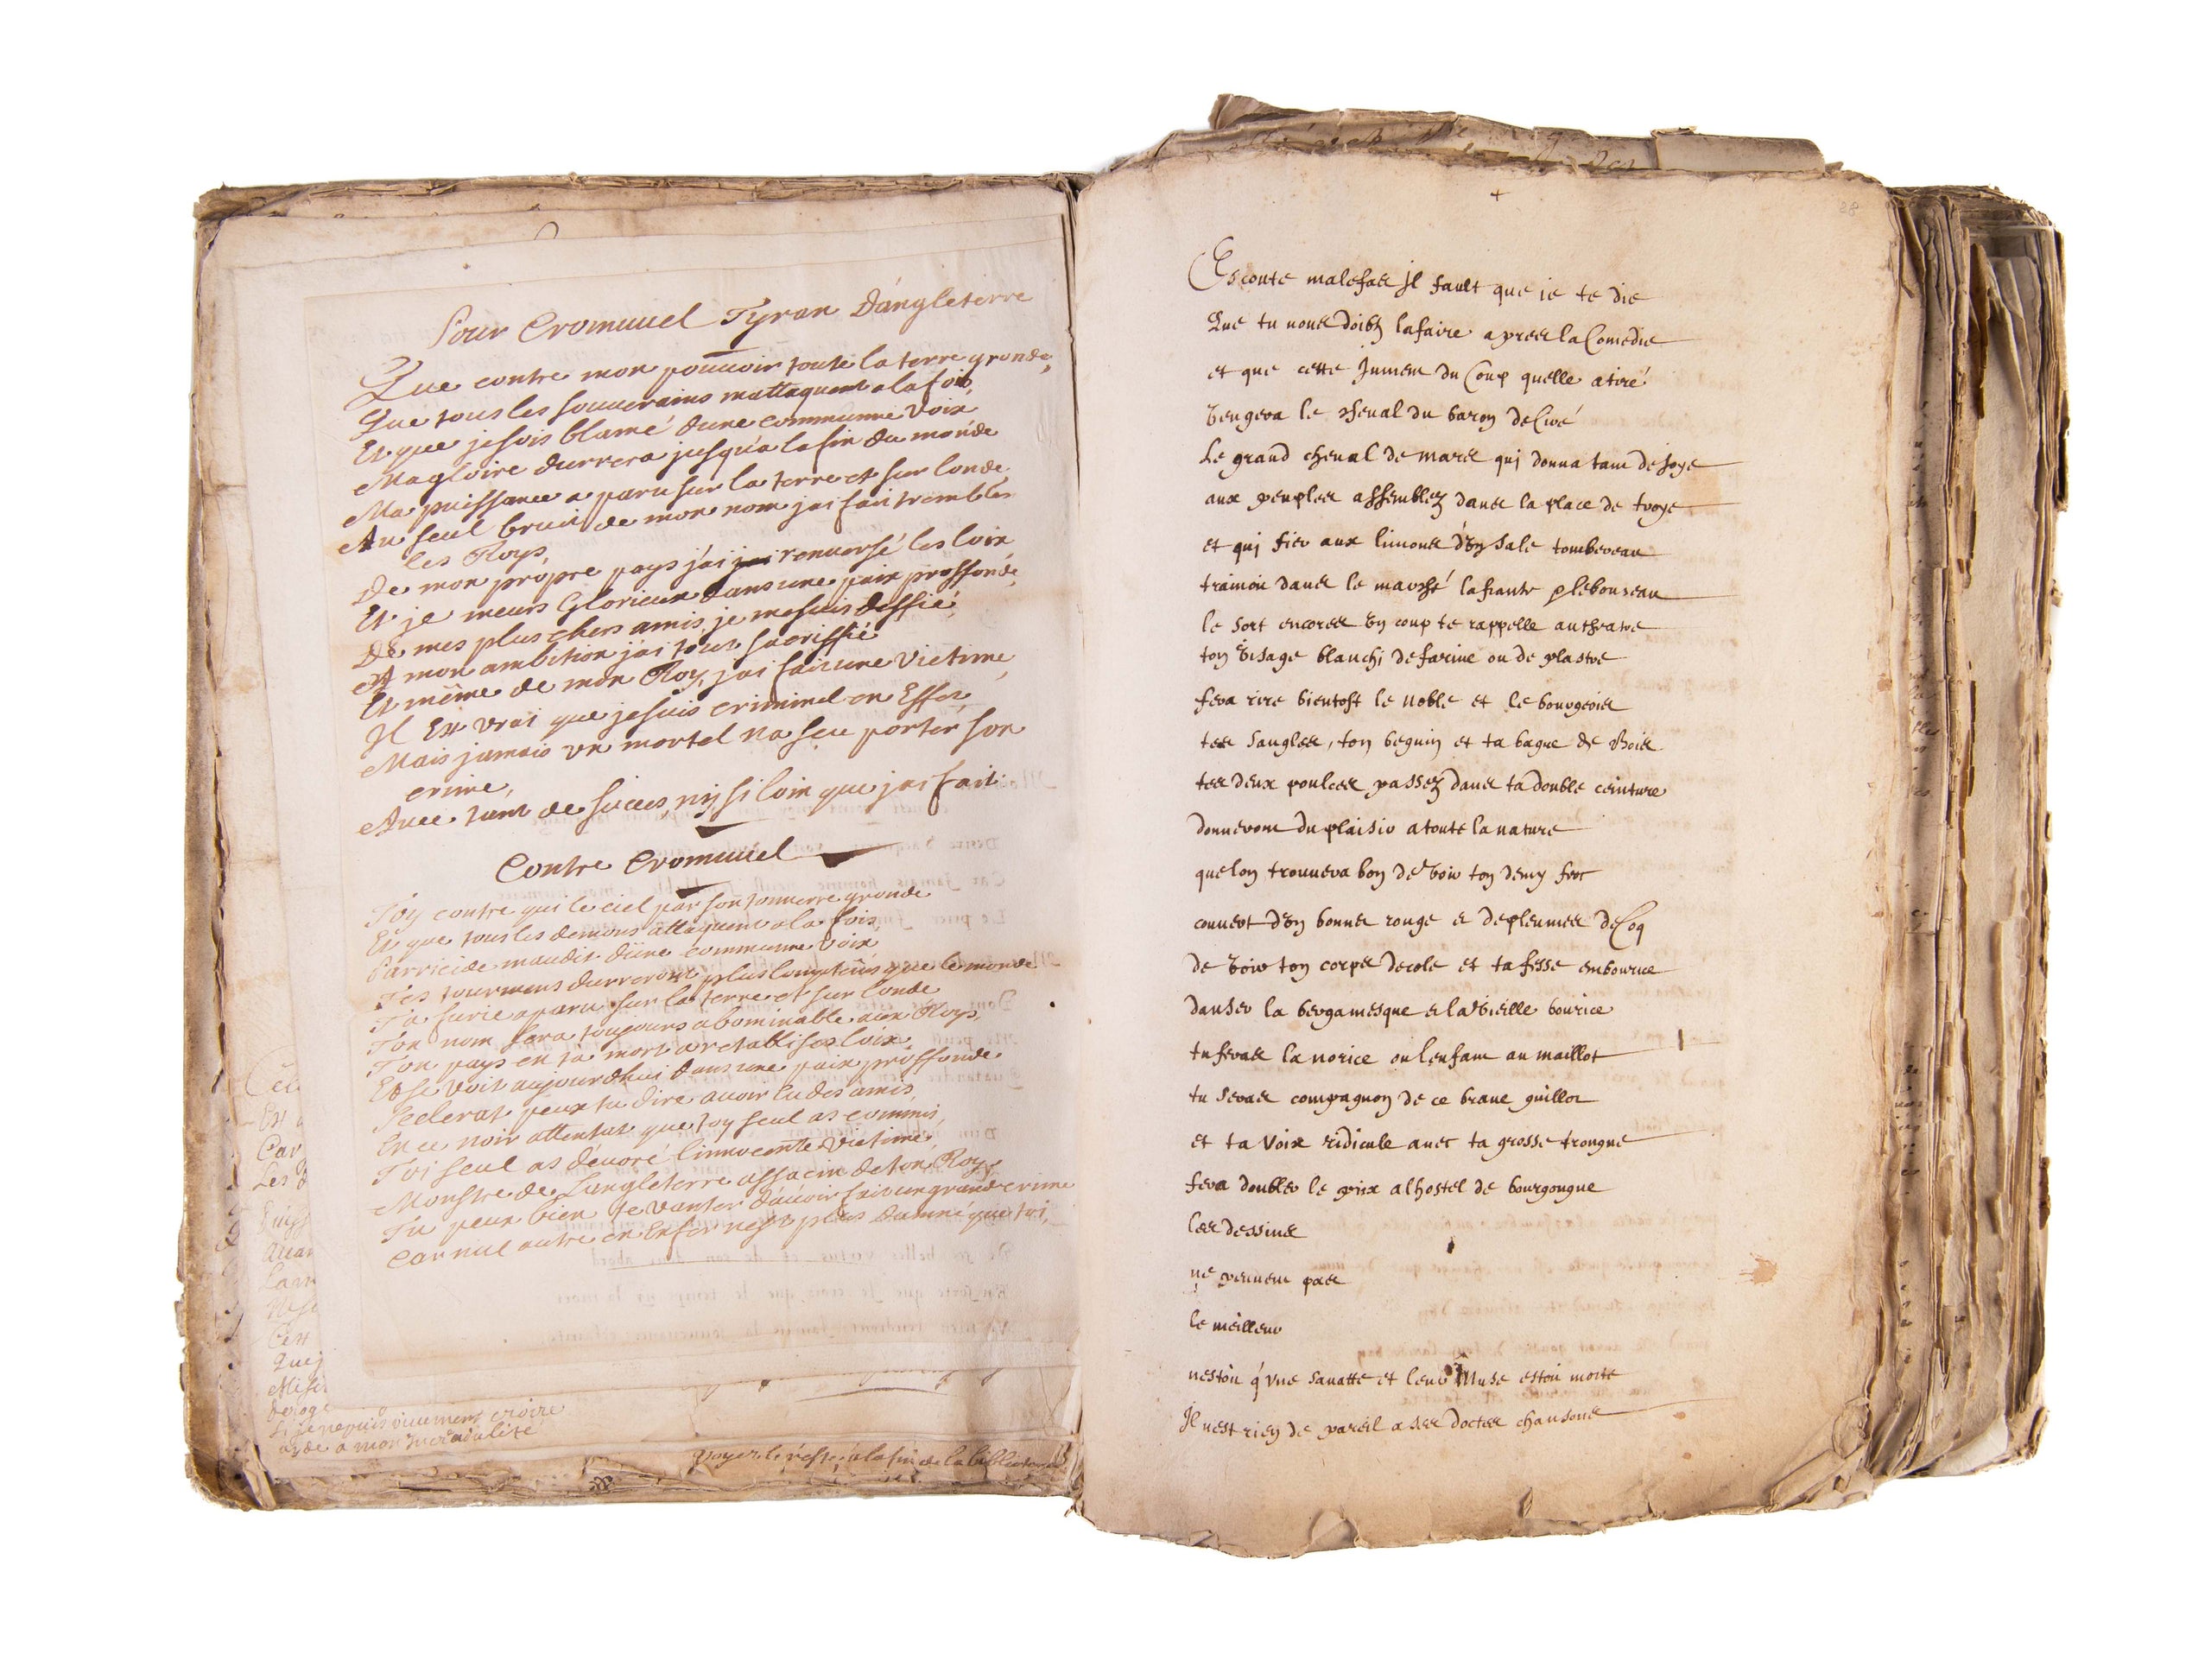 Pour Cromuuel Tyran D'angleterre
Que contre mon pouuoir toute la terre gronde,
Que tous les souuerains mattaquent a la fois,
Et que je sois blamé dune commune voix
Ma gloire durrera jusqu'a la fin du monde
Ma puissance a paru sur la terre et sur londe,
Au seul bruit de mon nom jai fait trembler
les Roys,
De mon propre pays j'ai renuersé les loix
Et je meurs Glorieux dans une paix proffonde,
De mes plus chers amis je me suis deffié,
A mon ambition jai tout sacriffié
Et même de mon Roy, jai fait une victime,
Il Est vrai que je suis criminel en Effet,
Mais jamais un mortel na sçu porter son
crime,
Auec tant de succes, ny si loin que jai fait.
Contre Cromuuel
Toy contre qui le ciel par son tonnerre gronde
Et que tous les demons attaquent a la fois,
Parricide maudit d'une commune voix
Tes tourmens durreront plus longtems que le monde
Ta furie a paru sur la terre et sur londe
Ton nom sera toujours abominable aux Roys,
Ton pays en ta mort a retabli ses loix,
Et se voit aujourdhui dans une paix proffonde
Scelerat peux tu dire auoir eu des amis,
En ce noir attentat que toy seul as commis,
Toi seul as déuoré linnocente victime,
Monstre de Langleterre assacin de ton Roy,
Tu peux bien te vanter d'auoir fait un grand crime
Car nul autre en Enfer nest plus damné que toi,
Car
Les
si je ne puis viuement croire
ayde a mon incredulité
voyez le reste a la fin de la
28
Escoute malefas Il fault que ie te die
Que tu nous doibs lafaire apres la Comedie
et que cette Jument du Coup quelle a tiré
Vengera le cheual du baron de Ciré
Le grand cheual de mars qui donna tant de joye
aux peuples assemblez dans la place de troye
et qui fier aux limons d'vn sale tombereau
trainoit dans le marché la fiante
le sort encores vn coup te rappelle au theatre
ton visage blanchi de farine ou de plastre
fera rire bientost le noble et le bourgeois
tes sangles, ton beguin et ta bague de bois
tes deux poulces passez dans ta double ceinture
donneront du plaisir a toute la nature
que lon trouuera bon de voir ton demy froc
couuert d'vn bonnet rouge et de pleumes de Coq
de voir ton corps decole et ta fesse
danser la bergamesque et la vieille bourice
tu feras la norice ou lenfant au maillot
tu seras compagnon de ce braue guillot
et ta voix ridicule auec ta grosse trongne
fera doubler le prix a lhostel de bourgongne
les dessins
ne prennent pas
le meilleur
nestoit q'vne sauatte et leur Muse estoit morte
Il nest rien de pareil a ses doctes chansons